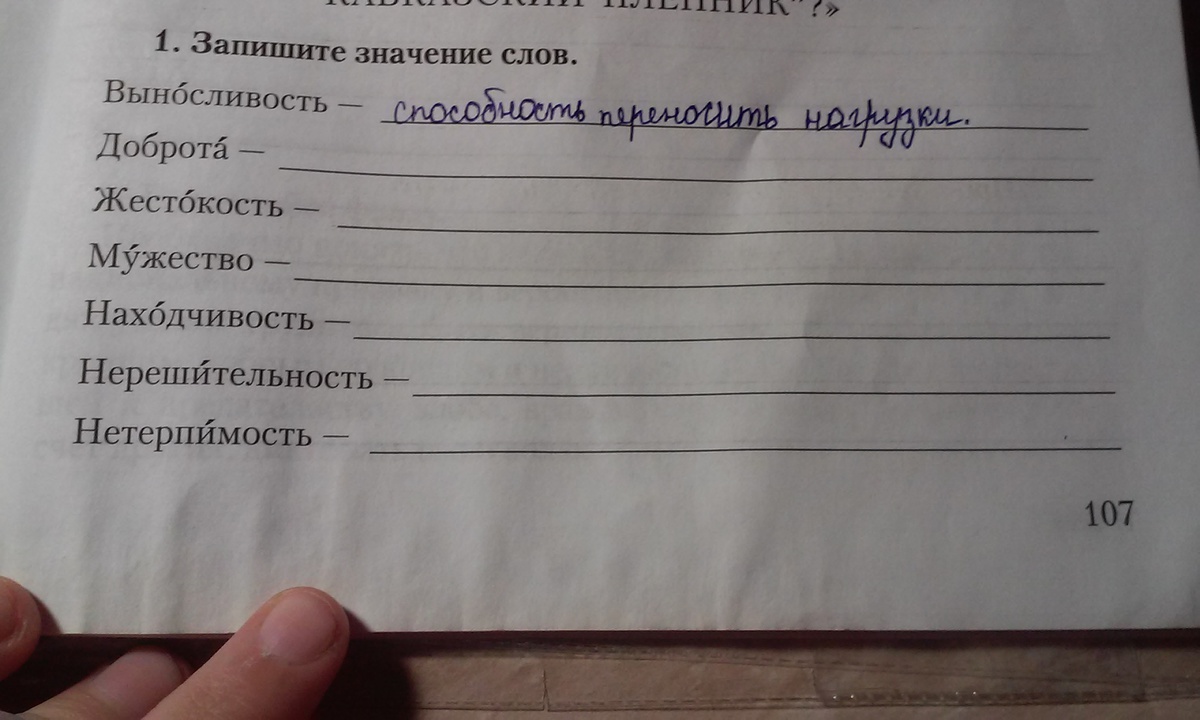 КАВКАЗСКИЙ ПЛЕННИК"?»
1. Запишите значение слов.
Выно́сливость — способность переносить нагрузки.
Доброта́ —
Жесто́кость —
Му́жество —
Нахо́дчивость —
Нереши́тельность —
Нетерпи́мость —
107